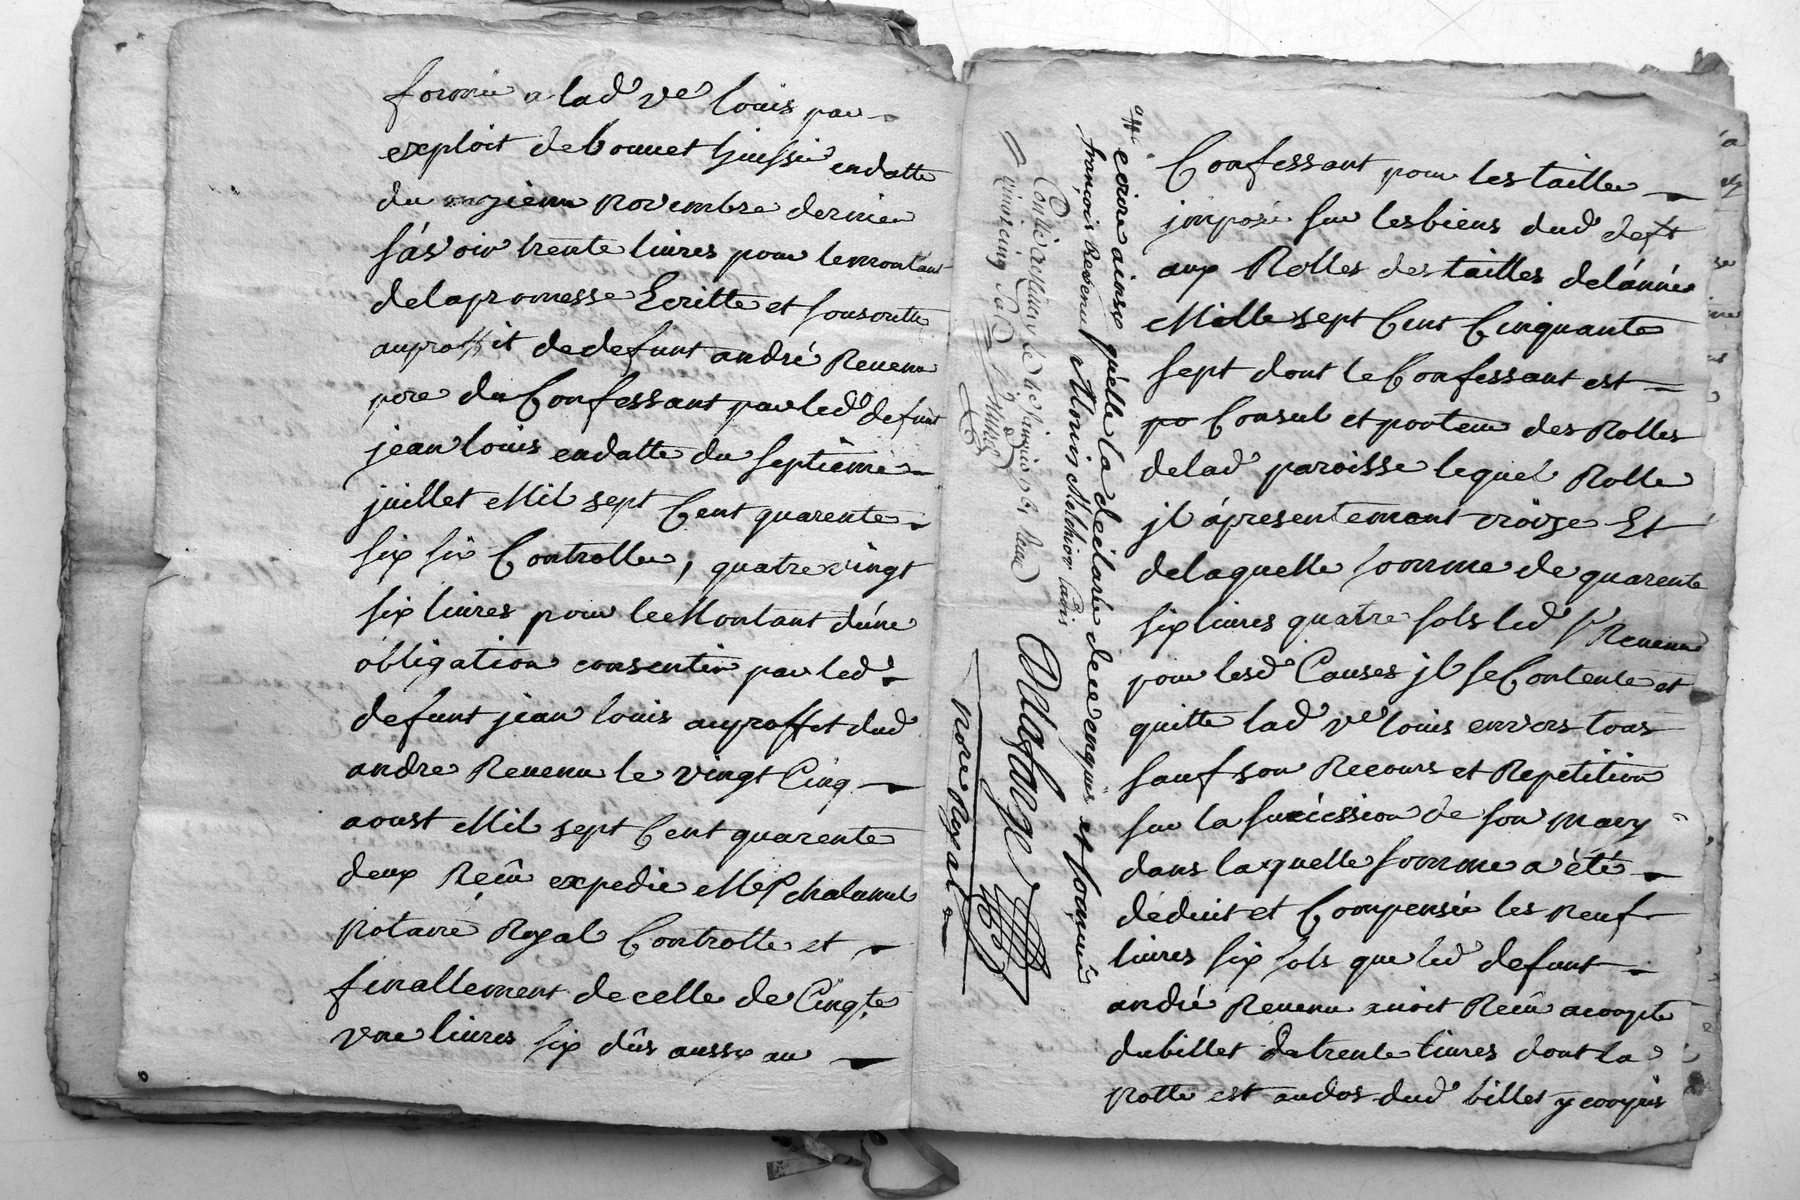 formée a lad ve louis par
exploit de bonnet huissier en datte
du onzieme novembre dernier
sçavoir trente livres pour le montant
de la promesse Ecritte et souscritte
au proffit de defunt andré Revenu
pere du Confessant par led defunt
jean louis en datte du septieme
juillet Mil sept Cent quarente
six Controlle, quatre vingt
six livres pour le Montant d'une
obligation consentie par led
defunt jean louis au proffit dud
andre Revenu le vingt Cinq
aoust Mil sept Cent quarente
deux Reçu expedié Me Chalamel
Notaire Royal Controllé et
finallement de celle de Cinqte
une livres six dûs aussy au
ecrire ainsy qu'elle la déclaré de ce enquis et
françois Revenu Alouis Melchior louis
Delafarge
nore Royal
Confessant pour les tailles
imposé sur les biens dud deft
aux Rolles des tailles de l'année
Mille sept Cent Cinquante
sept dont le Confessant est
po Consul et porteur des Rolles
de lad paroisse lequel Rolle
il a presentement Et
de laquelle somme de quarente
six livres quatre sols led sr Revenu
pour lesd Causes il se Contente et
quitte lad ve louis envers tous
sauf son Recours et Repetition
sur la succession de son mary
dans laquelle somme a été
déduit et Compensée les neuf
livres six sols que led defunt
andré Revenu avoit Reçu acompte
du billet de trente livres dont la
notte est au dos dud billet y compris